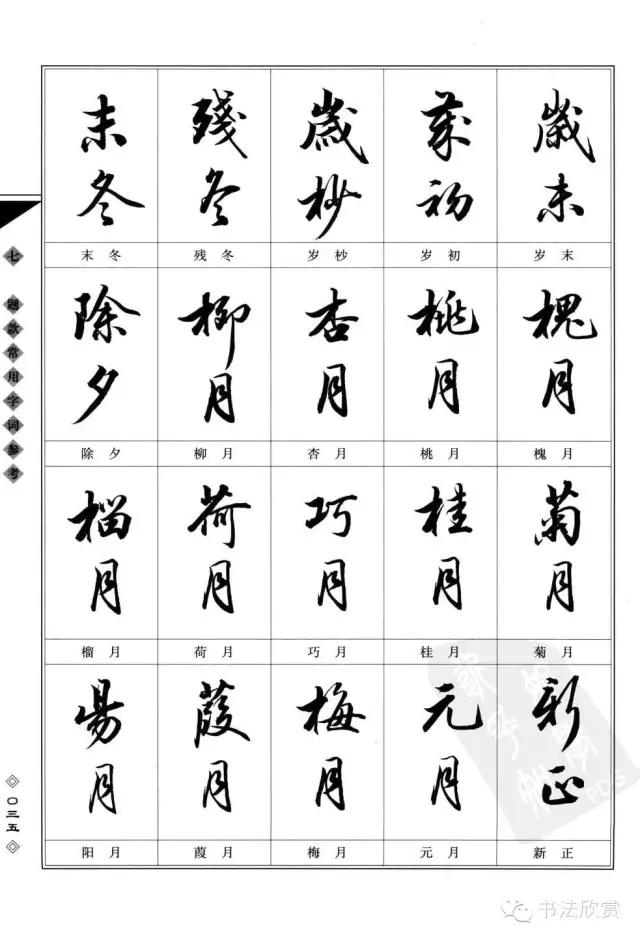 末冬
殘冬
歲杪
歲初
歲末
末 冬
残 冬
岁 杪
岁 初
岁 末
除夕
柳月
杏月
桃月
槐月
除 夕
柳 月
杏 月
桃 月
槐 月
榴月
荷月
巧月
桂月
菊月
榴 月
荷 月
巧 月
桂 月
菊 月
昜月
葭月
梅月
元月
新正
阳 月
葭 月
梅 月
元 月
新 正
七 题款常用字词参考
〇三五
PDS
书法欣赏